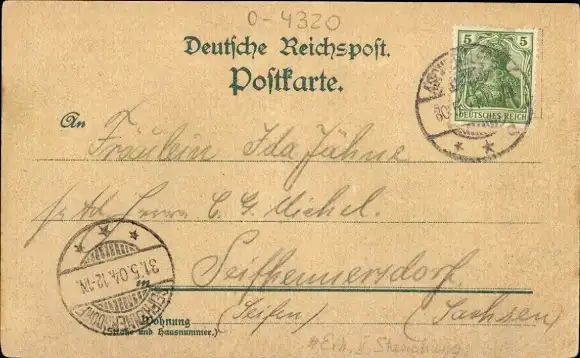 0-4320
Deutsche Reichspost.
Postkarte.
5 5
DEUTSCHES REICH
An
Fräulein Ida Jähne
Herrn C. G. Michel.
31.5.04. 12-1N.
in
Seifhennersdorf
Wohnung (Seifen) (Sachsen)
(Straße und Hausnummer.)